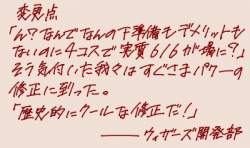 変更点
「ん？なんでなんの下準備もデメリットも
ないのに4コスで実質6/6が場に？」
そう気付いた我々はすぐさまパワーの
修正に到った。
「歴史的にクールな修正だ！」
――ウィザーズ開発部